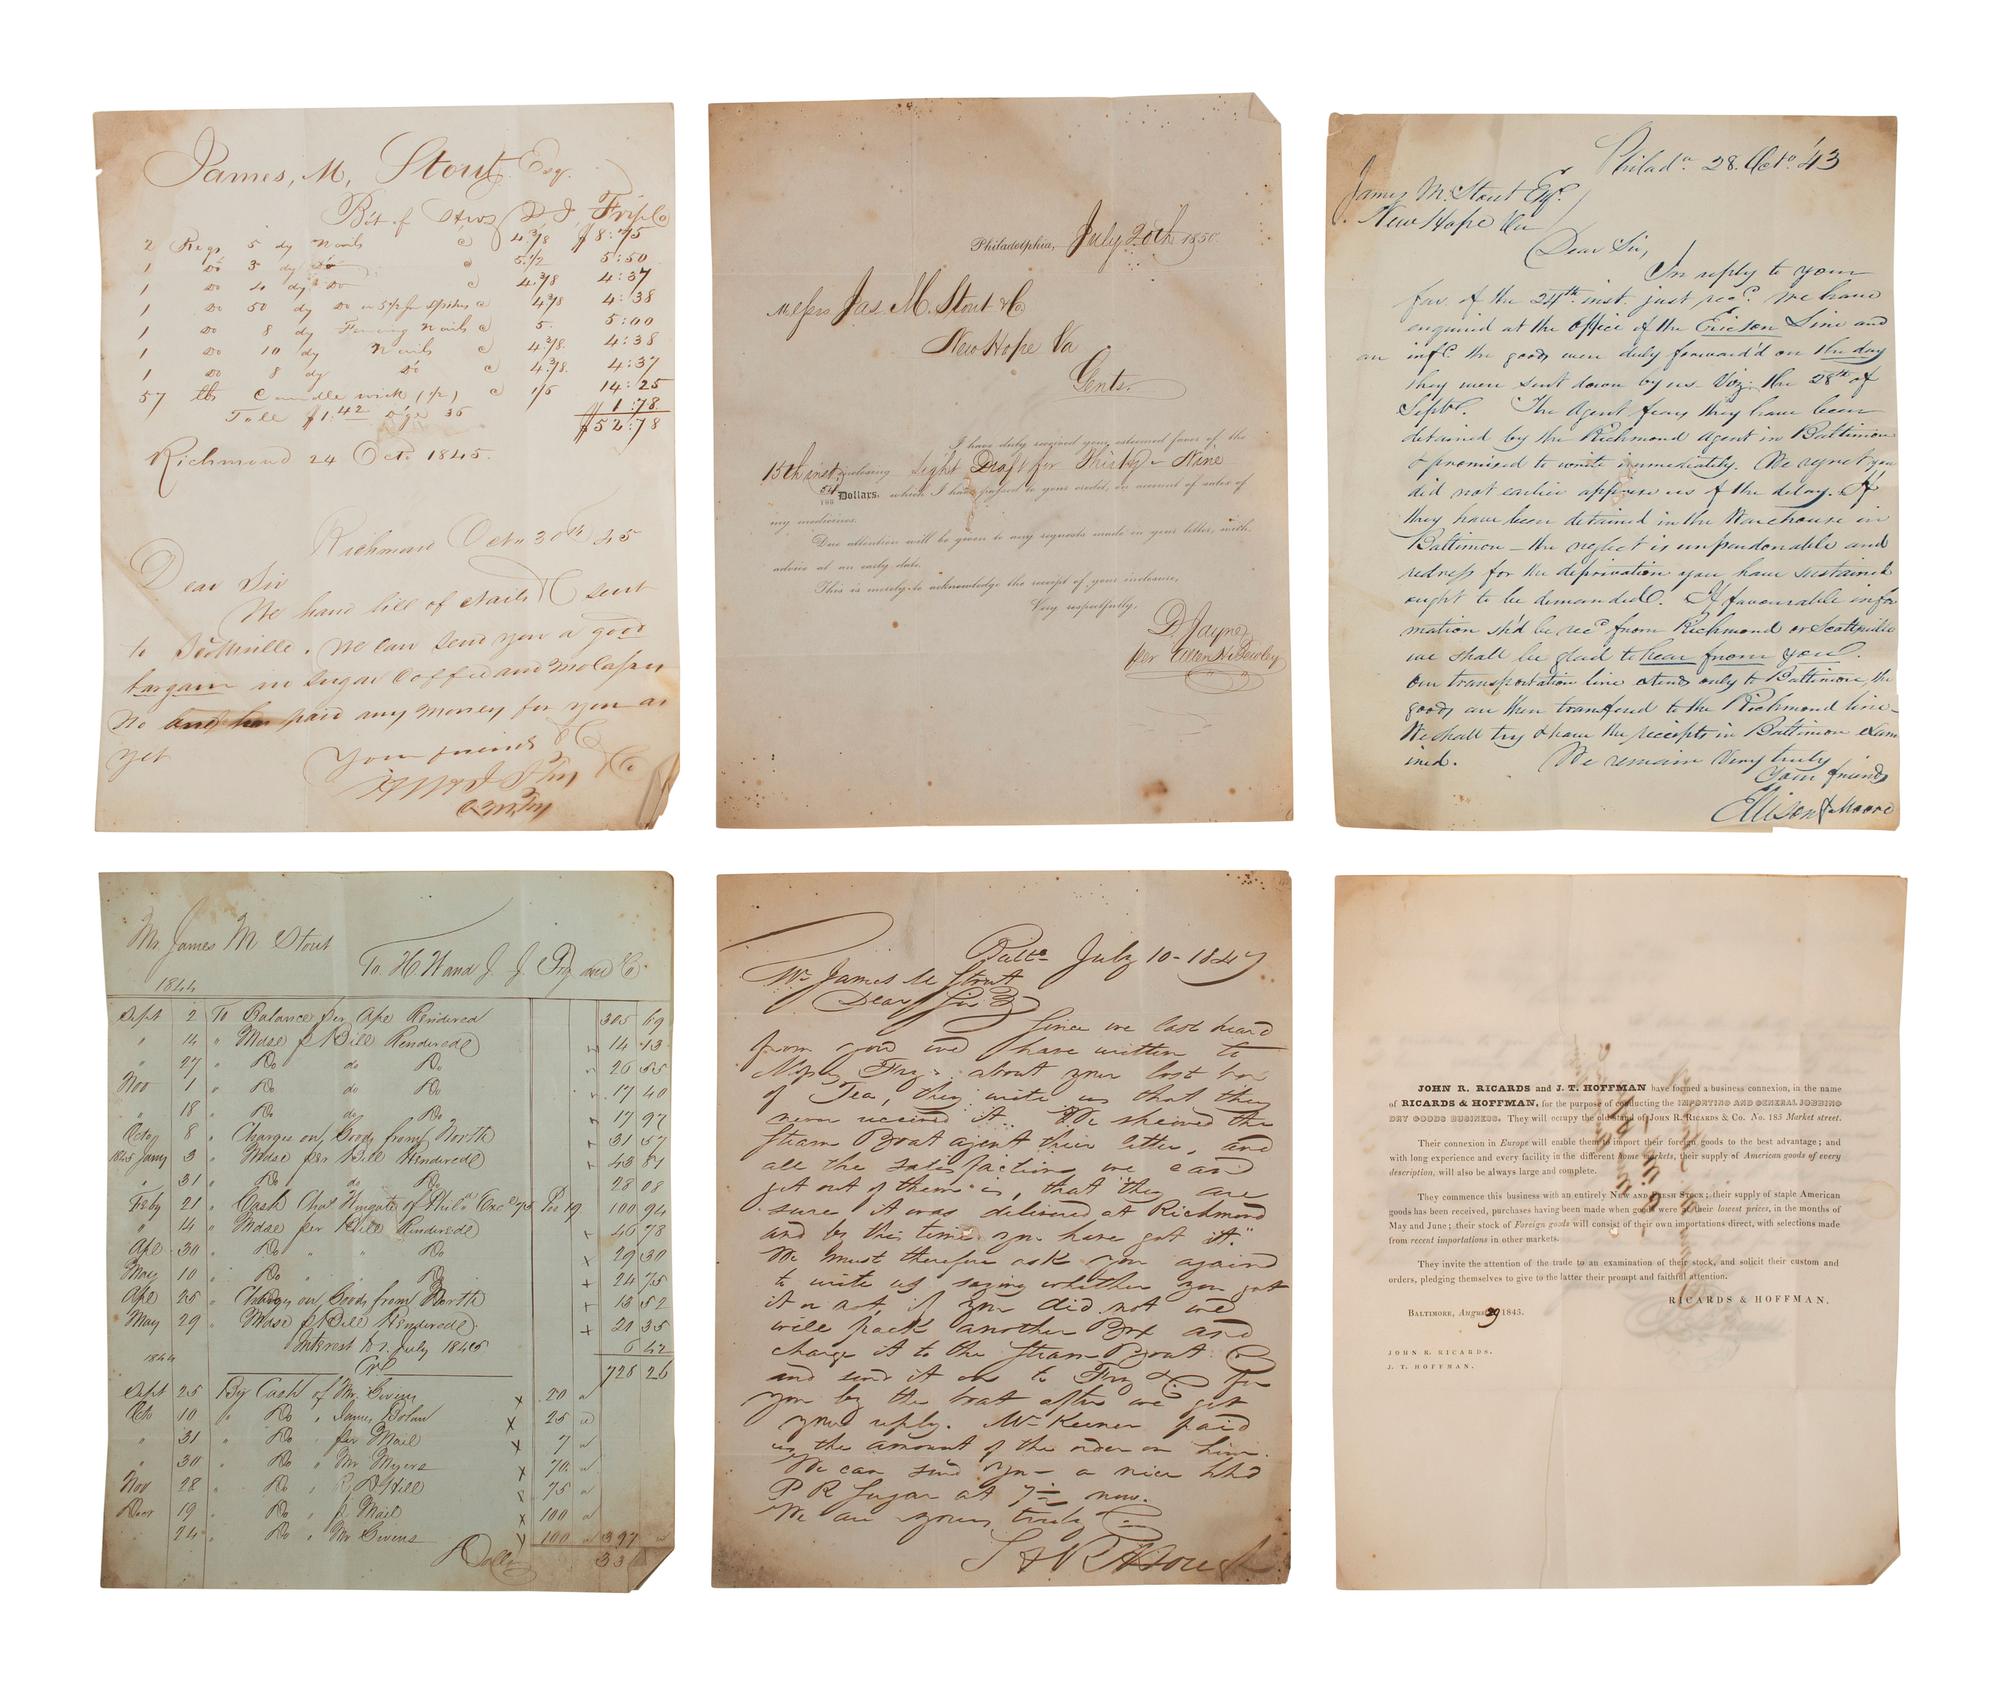 James, M, Stout Esq.
Bot. of H & J, J, Fry & Co
2 Kegs 5 dy Nails @ 4.3/8 $8:75
1 Do 3 dy Do @ 5.1/2 5:50
1 Do 4 dy Do @ 4.3/8 4:37
1 Do 50 dy Do or Spikes @ 4 3/8 4:38
1 Do 8 dy Fencing Nails @ 5. 5:00
1 Do 10 dy Nails @ 4.3/8. 4:38
1 Do 8 dy Do @ 4.3/8. 4:37
57 lbs Candle wick (1/2) @ 1/5 14:25
Toll $1.42 D'ge 36 1:78
$52:78
Richmond 24 Octo 1845.
Richmond Octo 30th 45
Dear Sir
We hand bill of Nails &C sent
to Scottsville. We can send you a good
bargain in Sugar Coffee and Molasses
No paid any money for you as
yet
Your friends &C
Philadelphia, July 20th 1850.
Messrs Jas. M. Stout & Co
New Hope Va
Gents.
I have duly received your esteemed favor of the
15th inst. inclosing Sight Draft for Thirty-Nine
54/100 Dollars, which I have passed to your credit, on account of sales of
my medicines.
Due attention will be given to any requests made in your letter, with
advice at an early date.
This is merely to acknowledge the receipt of your inclosure,
Very respectfully,
D. Jayne
per
Philada. 28. Octo. '43
James M. Stout Esqr.
New Hope Va
Dear Sir,
In reply to your
fav. of the 24th inst. just recd. We have
enquired at the office of the Ericson Line and
are infd. the goods were duly forward'd on the day
they were sent down by us Viz. the 28th of
Septbr. The Agent fears they have been
detained by the Richmond agent in Baltimore
& promised to write immediately. We regret you
did not earlier apprise us of the delay. If
they have been detained in the Warehouse in
Baltimore - the neglect is unpardonable and
redress for the deprivation you have sustained
ought to be demanded. If favourable infor
mation sh'd be recd from Richmond or Scottsville
we shall be glad to hear from you.
Our transportation line extends only to Baltimore, the
goods are then transferd to the Richmond line -
We shall try & have the receipts in Baltimore exam
ined. We remain Very truly
Your friends
Ellison & Moore
Mr James M Stout
To H. W and J. J. Fry and Co
1844
Sept 2 To Balance per Apc Rendered 305 69
" 14 " Mdse p Bill Rendered 14 13
" 27 " Do do Do 26 55
Nov 1 " Do do Do 17 40
" 18 " Do do Do 17 97
Octo 8 " Charges on Goods from North 31 57
1845 Jany 3 " Mdse per Bill Rendered 43 81
" 31 " Do do Do 28 08
Feby 21 " Cash Chas Wingate of Phila 100 94
" 14 " Mdse per Bill Rendered 46 78
Ape 30 " Do " " Do 29 30
May 10 " Do " Do 24 75
Ape 25 " Charges on Goods from North 13 52
May 29 " Mdse p Bill Rendered 21 35
Interest to 1. July 1845 6 42
728 26
1844 Cr
Sept 25 By Cash of Mr. Givens 20
Octo 10 " Do " James Bolan 25
" 31 " Do " per Mail 7
" 30 " Do " Mr Myers 70
Nov 28 " Do " R D Hill 75
Decr 19 " Do " p Mail 100
" 24 " Do " Mr Givens 100 397
33
Balto July 10 - 1847
Mr James M Stout
Dear Sir
Since we last heard
from you we have written to
Messrs Fry. about your lost box
of Tea, they write us that they
never received it. We shewed the
Steam Boat agent their letter, and
all the satisfaction we can
get out of them is, that they are
sure it was delivered at Richmond
and by this time you have got it."
We must therefore ask you again
to write us saying whether you got
it or not, if you did not we
will pack another Box and
charge it to the Steam Boat Co
and send it on to Fry & Co for
you by the boat after we get
your reply. Mr Keener paid
us the amount of the order on him.
We can send you a nice hhd
P R Sugar at 7 1/2 now.
We are yours truly
JOHN R. RICARDS and J. T. HOFFMAN have formed a business connexion, in the name
of RICARDS & HOFFMAN, for the purpose of conducting the IMPORTING AND GENERAL JOBBING
DRY GOODS BUSINESS. They will occupy the old stand of JOHN R. RICARDS & CO. No. 185 Market street.
Their connexion in Europe will enable them to import their foreign goods to the best advantage; and
with long experience and every facility in the different home markets, their supply of American goods of every
description, will also be always large and complete.
They commence this business with an entirely NEW AND FRESH STOCK; their supply of staple American
goods has been received, purchases having been made when goods were at their lowest prices, in the months of
May and June; their stock of Foreign goods will consist of their own importations direct, with selections made
from recent importations in other markets.
They invite the attention of the trade to an examination of their stock, and solicit their custom and
orders, pledging themselves to give to the latter their prompt and faithful attention.
RICARDS & HOFFMAN.
BALTIMORE, August 29 1843.
JOHN R. RICARDS.
J. T. HOFFMAN.